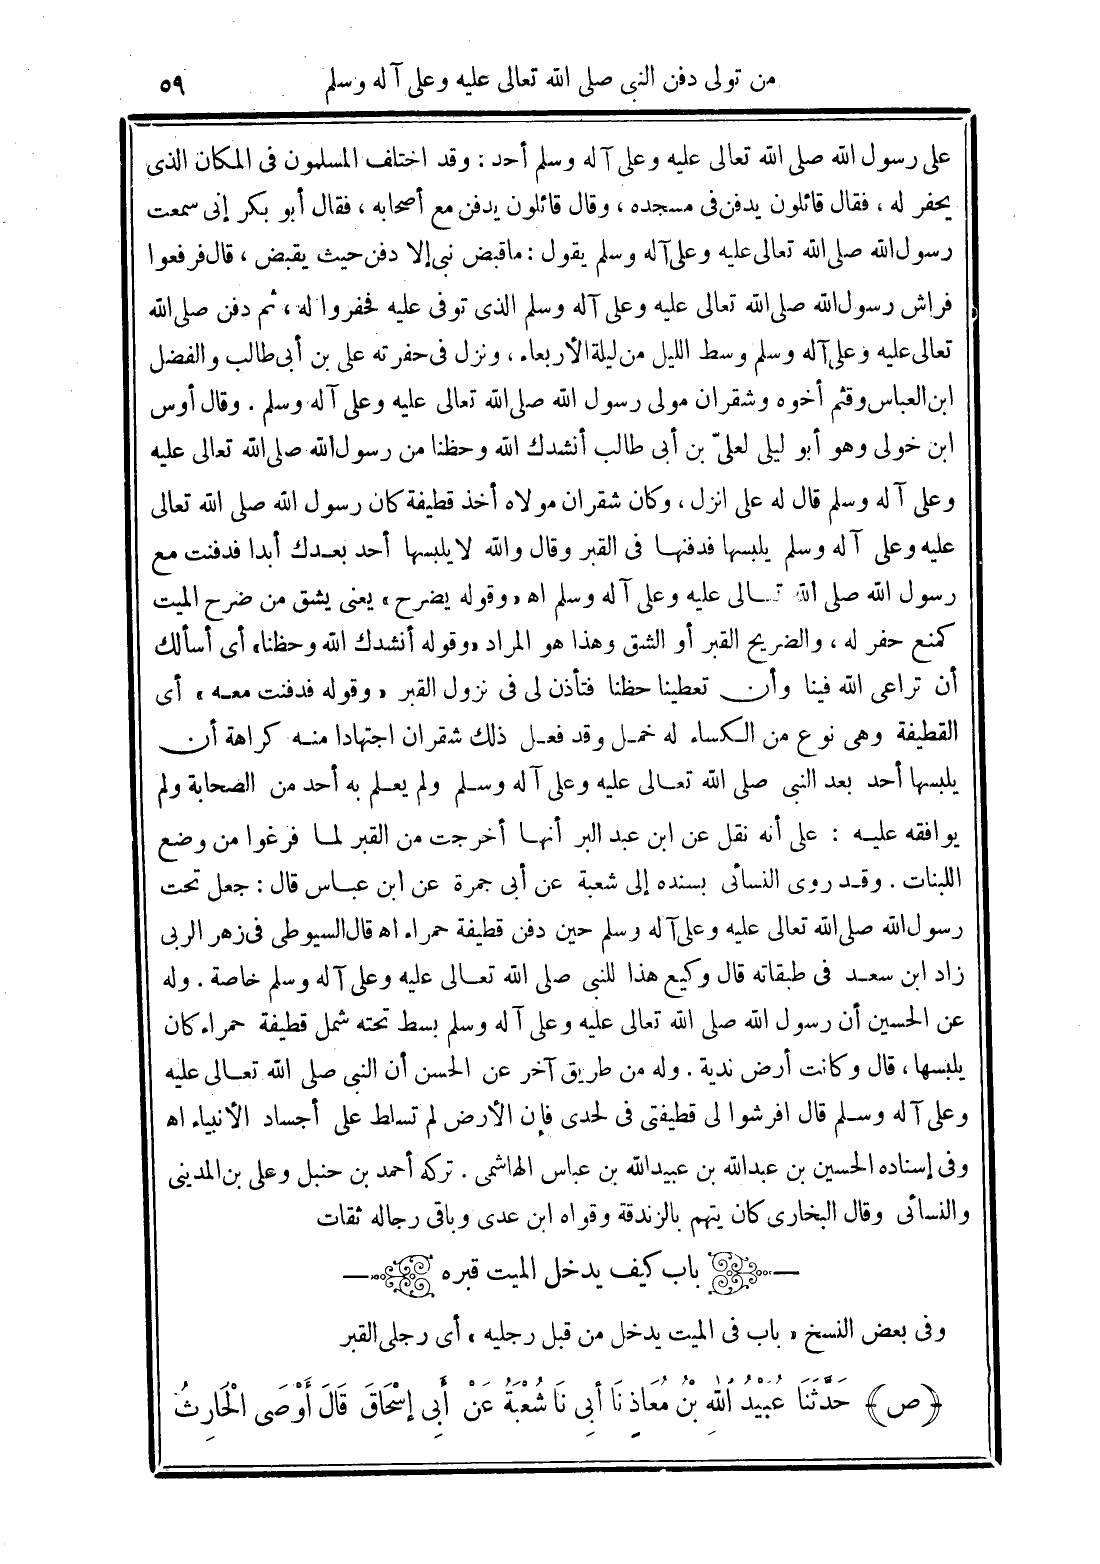 من تولى دفن النبى صلى الله تعالى عليه وعلى آله وسلم ٥٩
على رسول الله صلى الله تعالى عليه وعلى آله وسلم أحد : وقد اختلف المسلمون فى المكان الذى
يحفر له ، فقال قائلون يدفن فى مسجده ، وقال قائلون يدفن مع أصحابه ، فقال أبو بكر إنى سمعت
رسول الله صلى الله تعالى عليه وعلى آله وسلم يقول : ماقبض نبى إلا دفن حيث يقبض ، قال فرفعوا
فراش رسول الله صلى الله تعالى عليه وعلى آله وسلم الذى توفى عليه فحفروا له ، ثم دفن صلى الله
تعالى عليه وعلى آله وسلم وسط الليل من ليلة الأربعاء ، ونزل فى حفرته على بن أبى طالب والفضل
ابن العباس وقثم أخوه وشقران مولى رسول الله صلى الله تعالى عليه وعلى آله وسلم . وقال أوس
ابن خولى وهو أبو ليلى لعلىّ بن أبى طالب أنشدك الله وحظنا من رسول الله صلى الله تعالى عليه
وعلى آله وسلم قال له على انزل ، وكان شقران مولاه أخذ قطيفة كان رسول الله صلى الله تعالى
عليه وعلى آله وسلم يلبسها فدفنها فى القبر وقال والله لايلبسها أحد بعدك أبدا فدفنت مع
رسول الله صلى الله تعالى عليه وعلى آله وسلم اه «وقوله يضرح» يعنى يشق من ضرح الميت
كمنع حفر له ، والضريح القبر أو الشق وهذا هو المراد «وقوله أنشدك الله وحظنا» أى أسألك
أن تراعى الله فينا وأن تعطينا حظنا فتأذن لى فى نزول القبر «وقوله فدفنت معه» أى
القطيفة وهى نوع من الكساء له خمل وقد فعل ذلك شقران اجتهادا منه كراهة أن
يلبسها أحد بعد النبى صلى الله تعالى عليه وعلى آله وسلم ولم يعلم به أحد من الصحابة ولم
يوافقه عليه : على أنه نقل عن ابن عبد البر أنها أخرجت من القبر لما فرغوا من وضع
اللبنات . وقد روى النسائى بسنده إلى شعبة عن أبى جمرة عن ابن عباس قال : جعل تحت
رسول الله صلى الله تعالى عليه وعلى آله وسلم حين دفن قطيفة حمراء اه قال السيوطى فى زهر الربى
زاد ابن سعد فى طبقاته قال وكيع هذا للنبى صلى الله تعالى عليه وعلى آله وسلم خاصة . وله
عن الحسين أن رسول الله صلى الله تعالى عليه وعلى آله وسلم بسط تحته شمل قطيفة حمراء كان
يلبسها ، قال وكانت أرض ندية . وله من طريق آخر عن الحسن أن النبى صلى الله تعالى عليه
وعلى آله وسلم قال افرشوا لى قطيفتى فى لحدى فإن الأرض لم تسلط على أجساد الأنبياء اه
وفى إسناده الحسين بن عبدالله بن عبيدالله بن عباس الهاشمى . تركه أحمد بن حنبل وعلى بن المدينى
والنسائى وقال البخارى كان يتهم بالزندقة وقواه ابن عدى وباقى رجاله ثقات
باب كيف يدخل الميت قبره
وفى بعض النسخ «باب فى الميت يدخل من قبل رجليه» أى رجلى القبر
﴿ص﴾ حَدَّثَنَا عُبَيْدُ اللهِ بْنُ مُعَاذٍ نَا أَبِى نَا شُعْبَةُ عَنْ أَبِى إِسْحَاقَ قَالَ أَوْصَى الْحَارِثُ